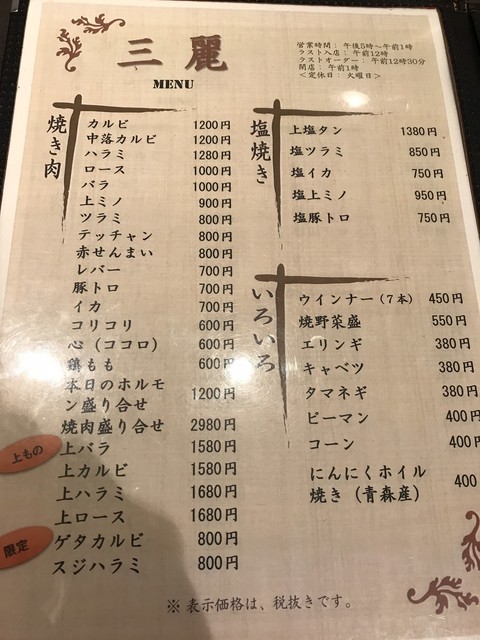 三麗
MENU
営業時間：午後5時〜午前1時
ラスト入店：午前12時
ラストオーダー：午前12時30分
閉店：午前1時
＜定休日：火曜日＞
焼き肉
カルビ 1200円
中落カルビ 1200円
ハラミ 1280円
ロース 1000円
バラ 1000円
上ミノ 900円
ツラミ 800円
テッチャン 800円
赤せんまい 800円
レバー 700円
豚トロ 700円
イカ 700円
コリコリ 600円
心（ココロ） 600円
鶏もも 600円
本日のホルモ
ン盛り合せ 1200円
焼肉盛り合せ 2980円
上もの
上バラ 1580円
上カルビ 1580円
上ハラミ 1680円
上ロース 1680円
限定
ゲタカルビ 800円
スジハラミ 800円
塩焼き
上塩タン 1380円
塩ツラミ 850円
塩イカ 750円
塩上ミノ 950円
塩豚トロ 750円
いろいろ
ウインナー（7本） 450円
焼野菜盛 550円
エリンギ 380円
キャベツ 380円
タマネギ 380円
ピーマン 400円
コーン 400円
にんにくホイル
焼き（青森産） 400
※ 表示価格は、税抜きです。